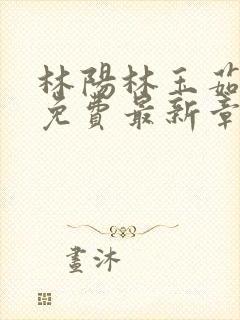 林陽林玉茹
免費最新章
畫沐